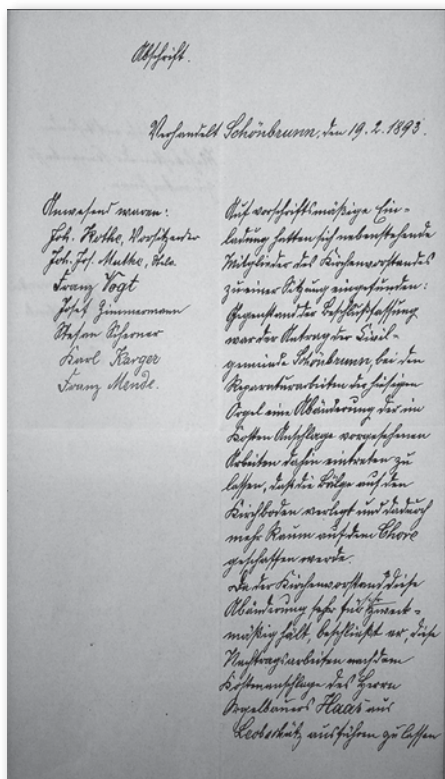 Abschrift.
Verhandelt Schönbrunn, den 19. 2. 1893.
Anwesend waren:
Joh. Rothe, Vorsitzender
Joh. Jos. Mulke,
Franz Vogt
Josef Zimmermann
Stefan Scherner
Karl Karger
Franz Mende.
Auf vorschriftsmäßige Ein-
ladung hatten sich nebenstehende
Mitglieder des Kirchenvorstandes
zu einer Sitzung eingefunden:
Gegenstand der Beschlußfassung
war der Antrag der Civil-
gemeinde Schönbrunn, bei den
Reparaturarbeiten der hiesigen
Orgel eine Abänderung der im
Kosten Anschlage vorgesehenen
Arbeiten dahin eintreten zu
lassen, daß die Bälge auf den
Kirchboden verlegt und dadurch
mehr Raum auf dem Chore
geschaffen werde.
Da der Kirchenvorstand diese
Abänderung sehr für zweck-
mäßig hält, beschließt er, diese
Nachtragsarbeiten nach dem
Kostenanschlage des Herrn
Orgelbauers Haas aus
Leobschütz ausführen zu lassen